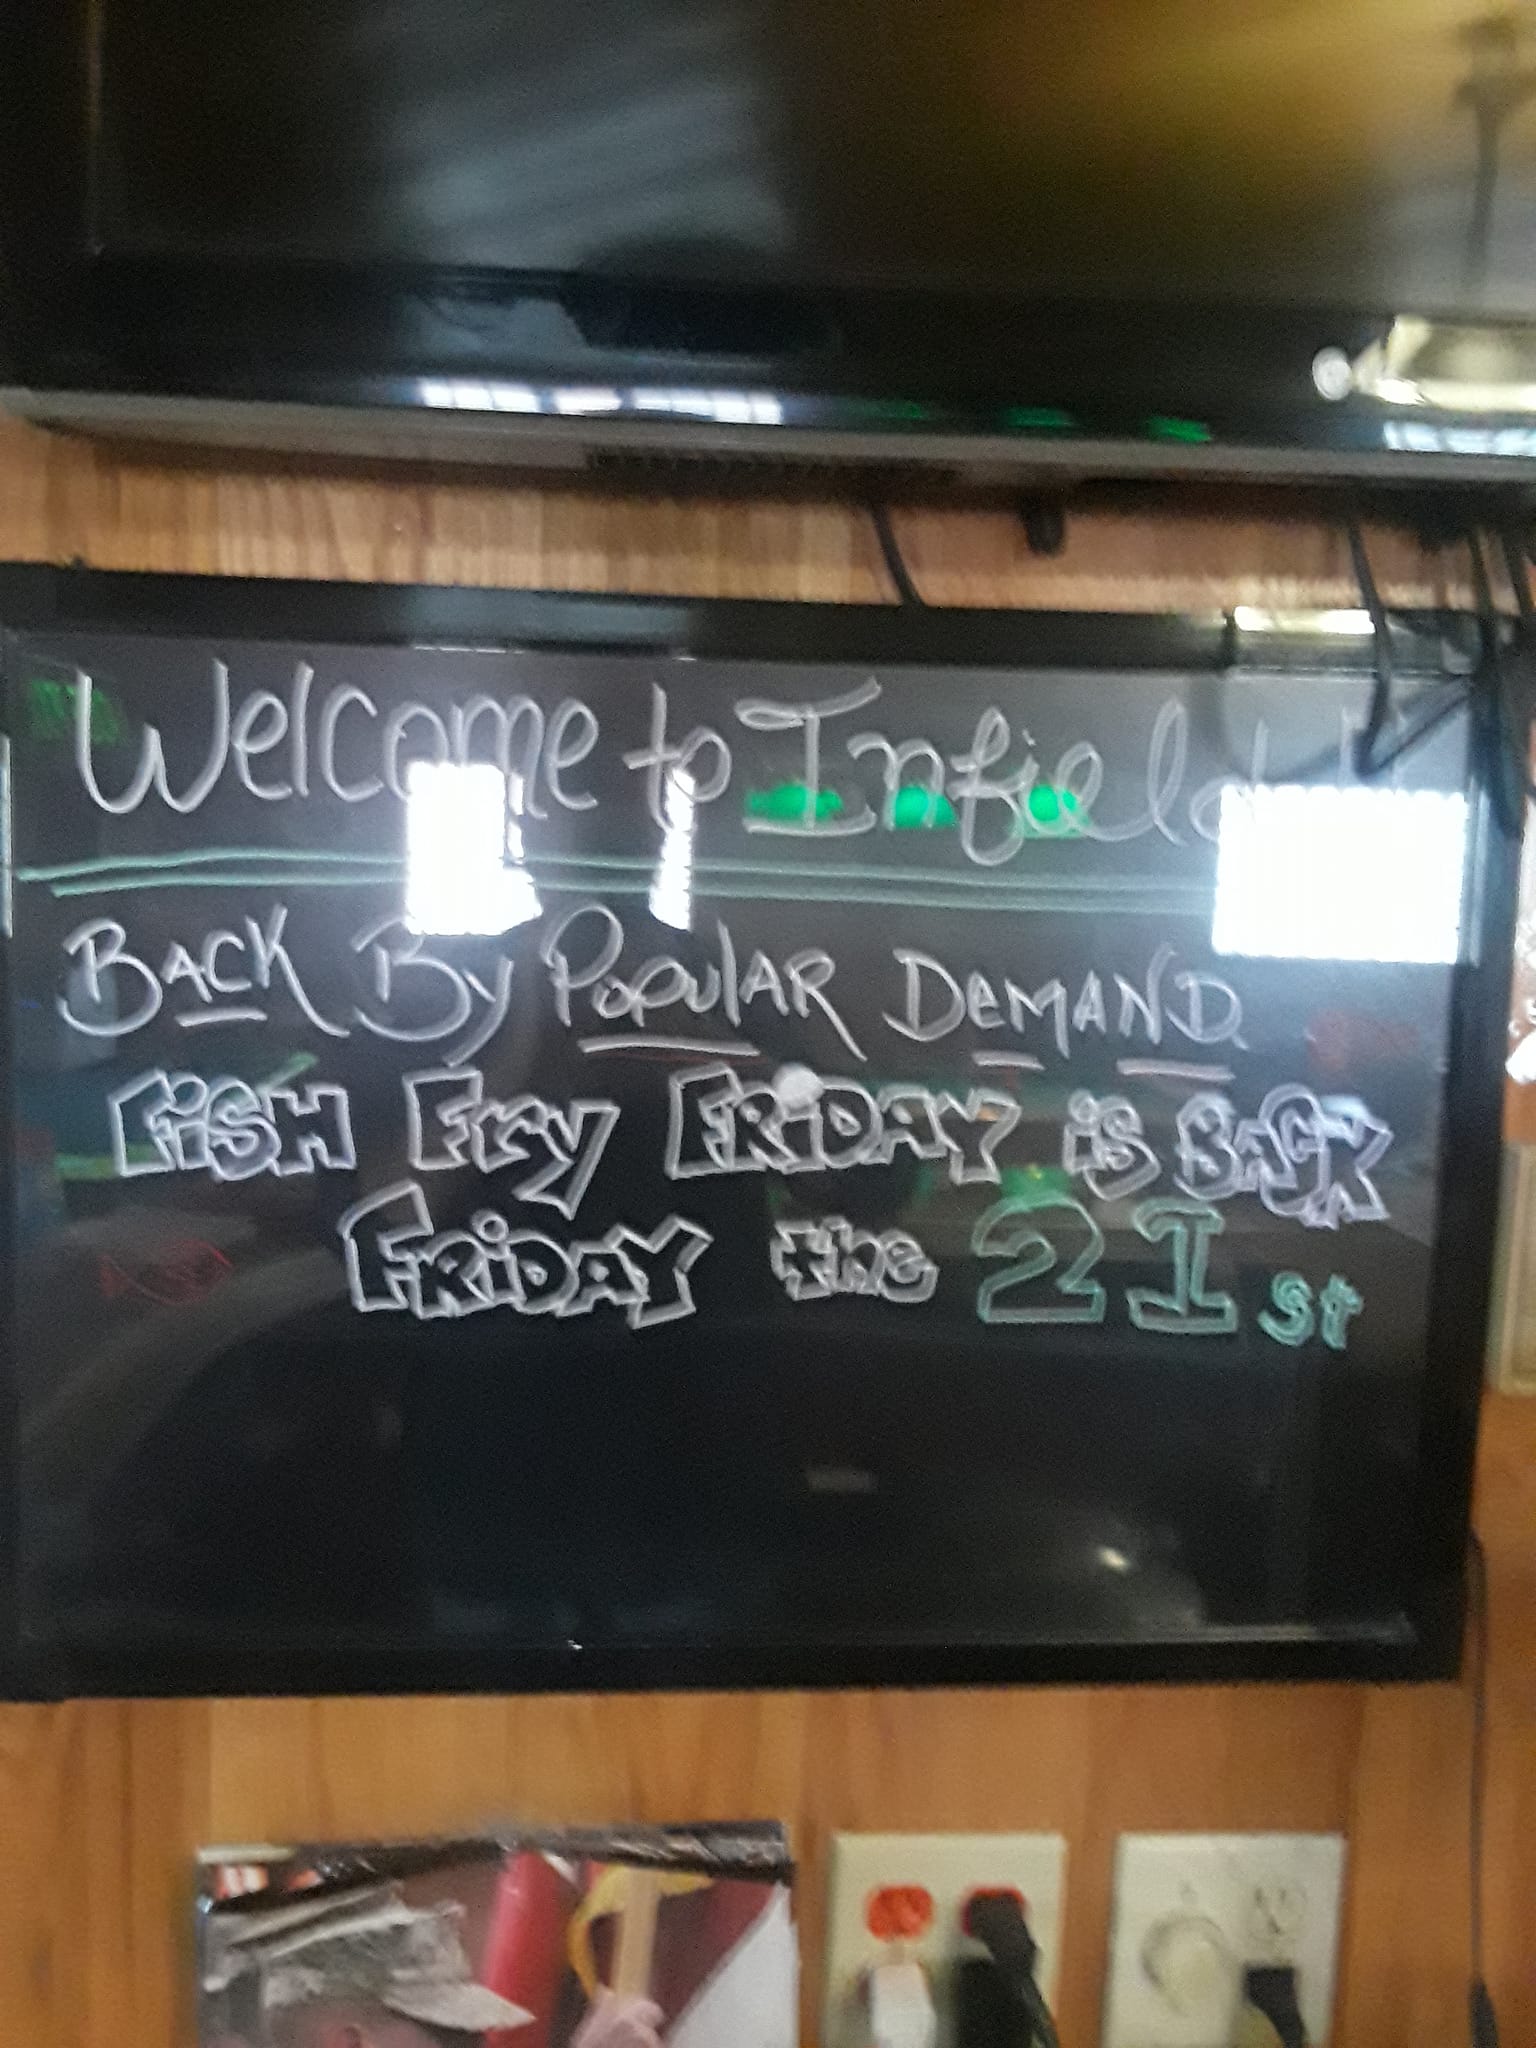 Welcome to Infield
BACK By PopulAR DeMAND.
FiSH Fry FRiDAY iS BACK
FRiDAY the 21st